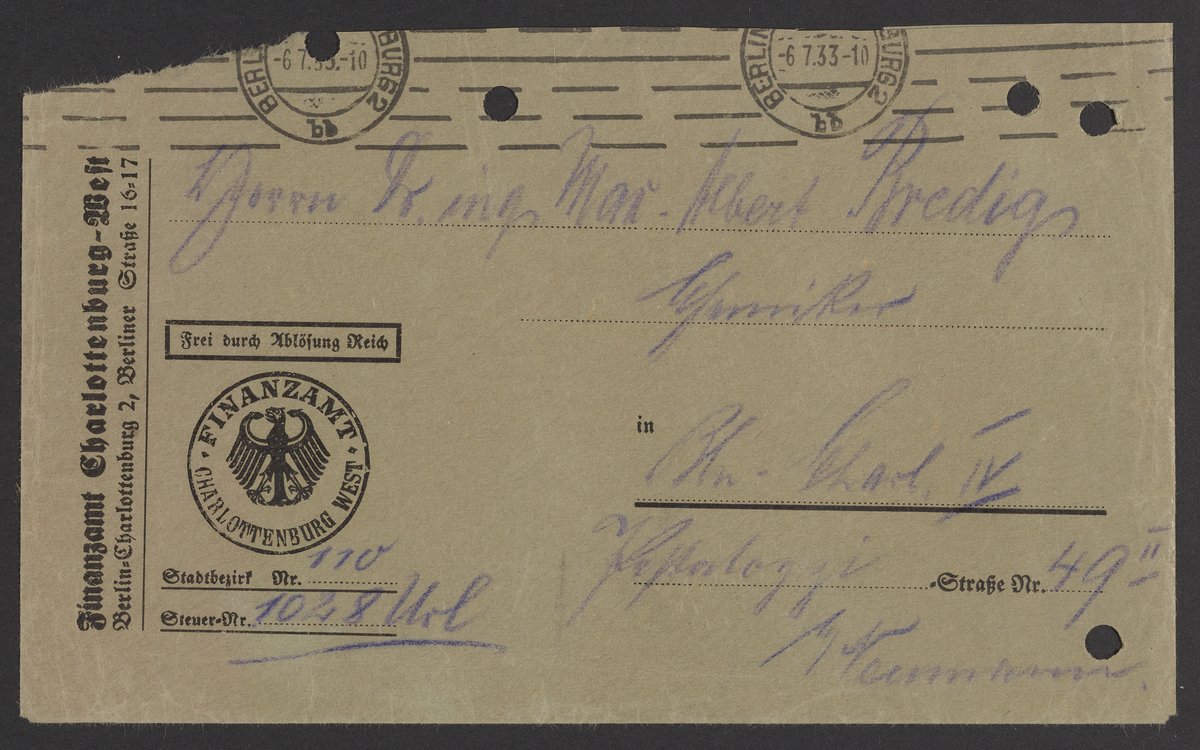 BERLIN BURG2
-6 7.33.-10
BERLIN BURG2
-6 7.33-10
Finanzamt Charlottenburg-West
Berlin-Charlottenburg 2, Berliner Straße 16-17
Herrn Dr. ing. Max-Albert Bredig
Chemiker
Frei durch Ablösung Reich
FINANZAMT
CHARLOTTENBURG WEST
in Bln-Charl. IV
Stadtbezirk Nr. 110
Pestalozzi -Straße Nr. 49 II
Steuer-Nr. 1028
b/ Neumann.